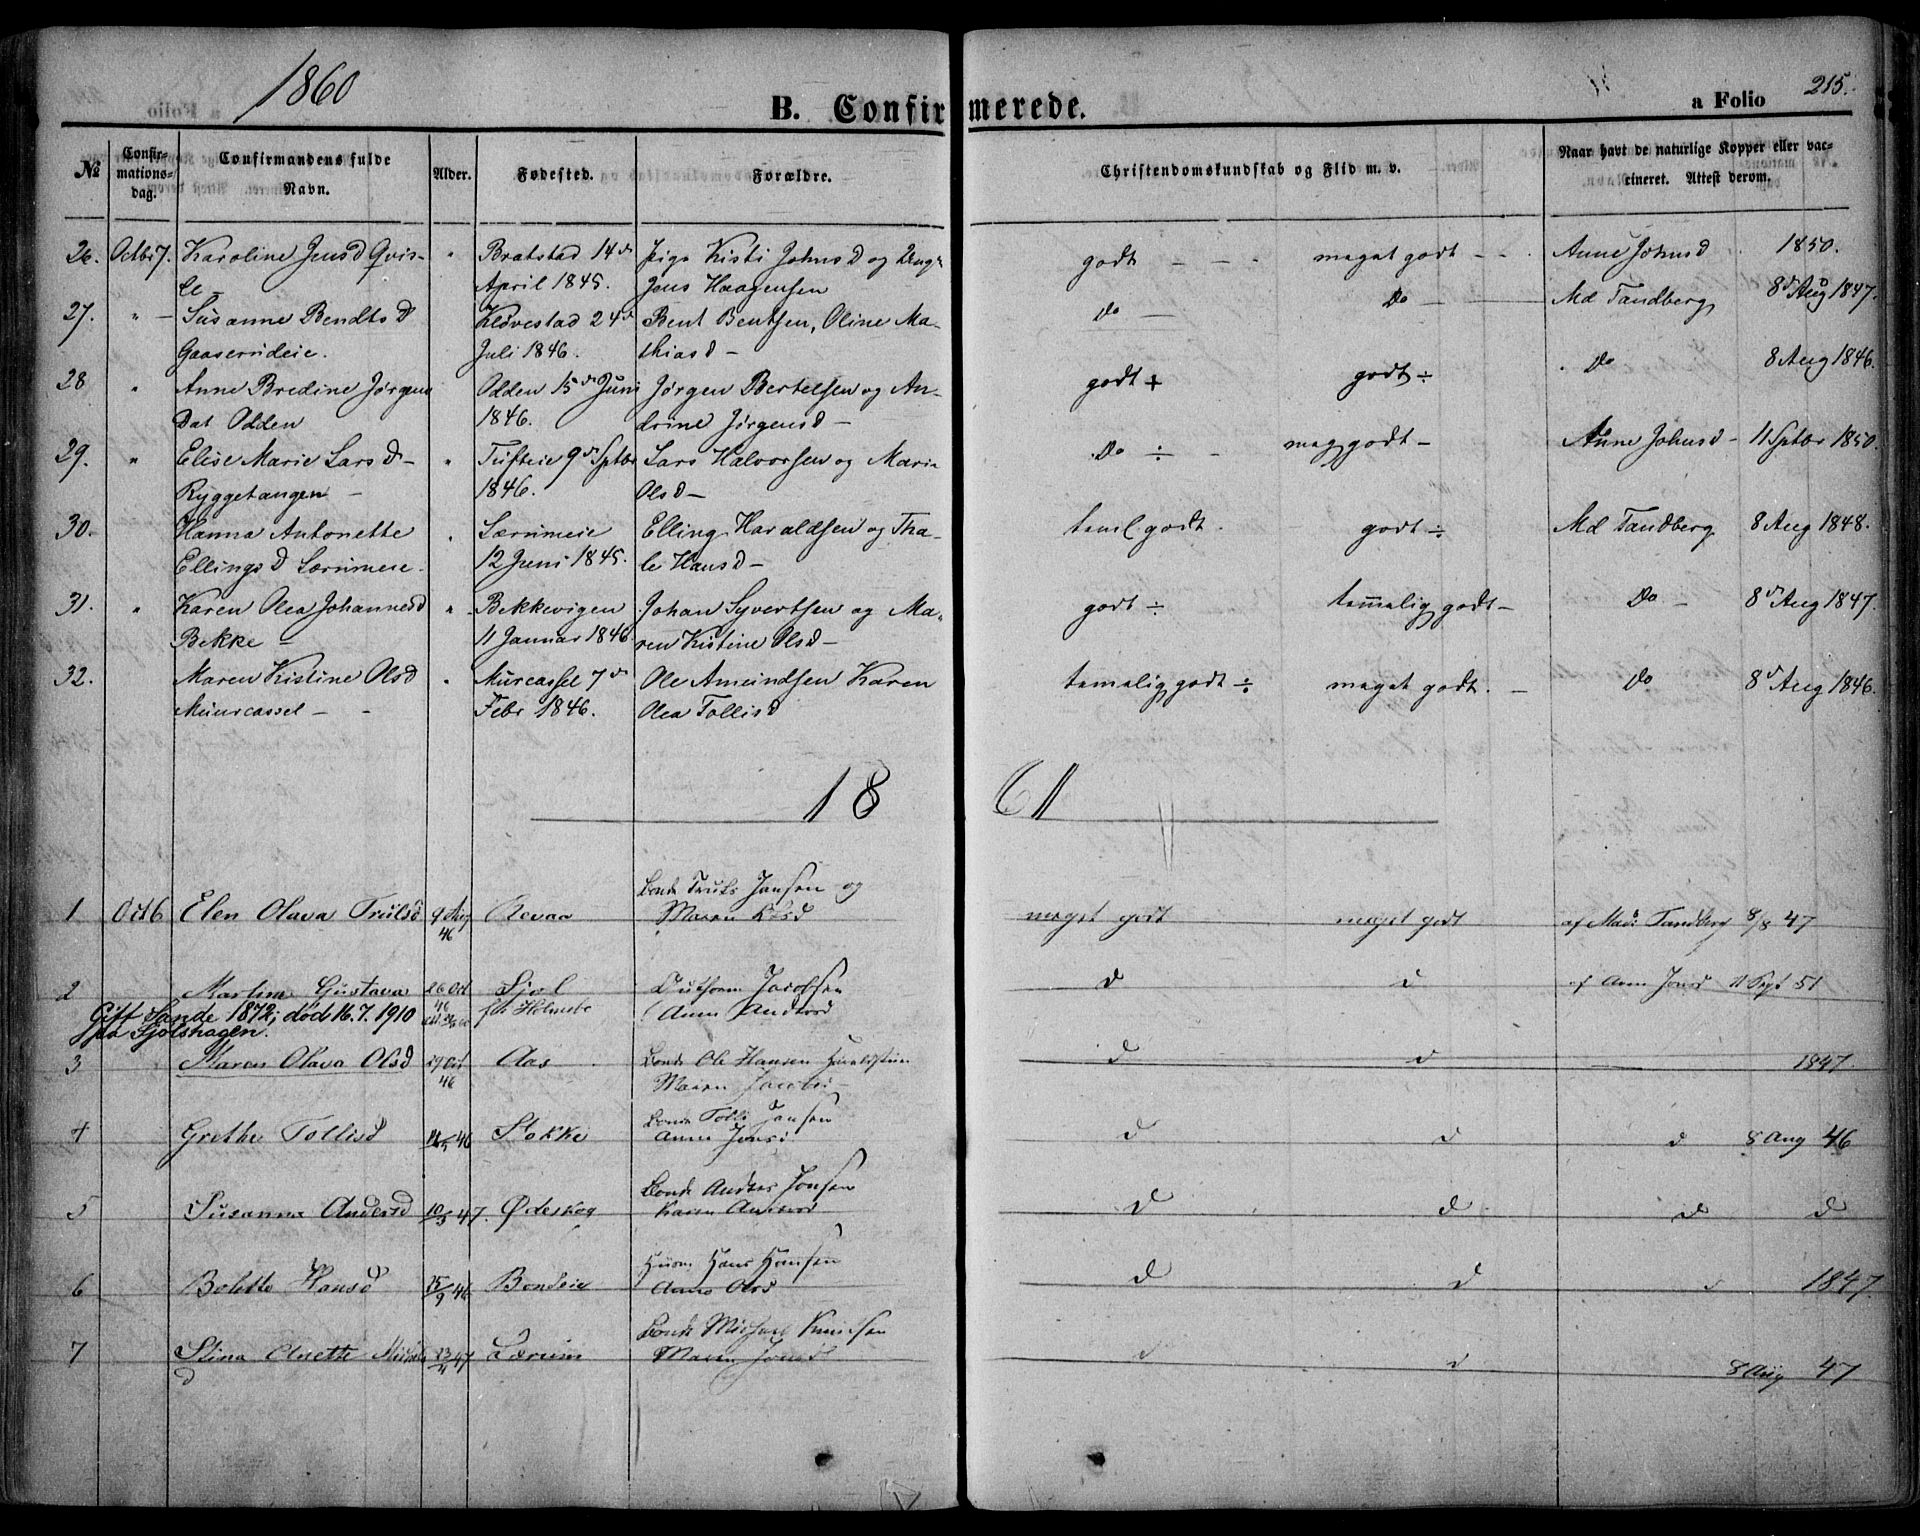 1860
B. Confirmerede.
a Folio 215.
№
Confirmations-
dag.
Confirmandens fulde
Navn.
Alder.
Fødested.
Forældre.
Christendomskundskab og Flid m. v.
Naar havt de naturlige Kopper eller vac-
cineret. Attest derom.
26. Octbr 7. Karoline Jensd Qvis- " Bratstad 14d Pige Kisti Johnsd og Ung- godt - - - meget godt - - Anne Johnsd 1850.
le - April 1845. Jens Haagensen
27. " - Susanne Bendtsd Klövestad 24d Bent Bentsen, Oline Ma- Do - Do - Md Tandberg 8d Aug 1847.
Gaaserudeie. Juli 1846. thiasd -
28 " Anne Bredine Jørgens Odden 15de Juni Jørgen Bertelsen og An- godt + godt ÷ Do 8 Aug 1846.
Dat Odden 1846. drine Jørgensd -
29. " Elise Marie Larsd - " Tufteie 9de Sptbr Lars Halvorsen og Mari- Do ÷ - meg godt - Anne Johnsd - 11 Sptbr 1850.
Ryggetangen - 1846. Olsd -
30. Hanna Antonette " Lærumeie Elling Haraldsen og Tha- teml godt. godt ÷ Md Tandberg 8 Aug 1848.
Ellingsd Lærumeie. 12 Juni 1845. le Hansd -
31. " Karen Olea Johannesd " Bekkevigen Johan Syvertsen og Ma- godt ÷ temelig godt - Do - 8d Aug 1847.
Bekke - 11 Januar 1846 ren Kistine Olsd -
32. Maren Kistine Olsd " Murcassel 7de Ole Amundsen Karen temelig godt ÷ meget godt. - Do 8d Aug 1846.
Muurcassel - - Febr 1846. Olea Tollisd
1861
Bonde Truls Jansen og
1 Oct 6 Elen Olava Trulsd 9 Aug Revaa Maren meget godt meget godt af Mad: Tandberg 8/8 47
46
2 Martine Gustava 26 Oct Sjøl Guthorm Jacobsen d d af Anne Jonsd 11 Sept 51
46
Gift Sande 1872; død 16.7.1910 Anne
på Sjølshagen.
3 Maren Olava Olsd 29 Oct Aas Bonde Ole Hansen d d 1847.
46 Maren Jacobs -
Bonde Tolli Jansen
4 Grethe Tollisd 46 Stokke Anne Jensd d d d 8 Aug 46
Bonde Anders Jonsen
5 Susanna Andersd 10/3 47. Ødeskog Karen d d d d
Huusm Hans Hansen
6 Bolette Hansd 25/9 46 Bondeie Anne Olsd d d d 1847.
Bonde Michael Knudsen
7 Stina Anette Michels 23/4 47 Lærum Maren Jonsd d d 8 Aug 47
d